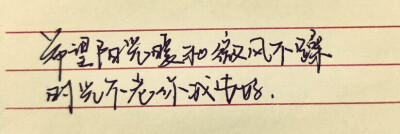 希望阳光暖和微风不躁
时光不老你我步好.